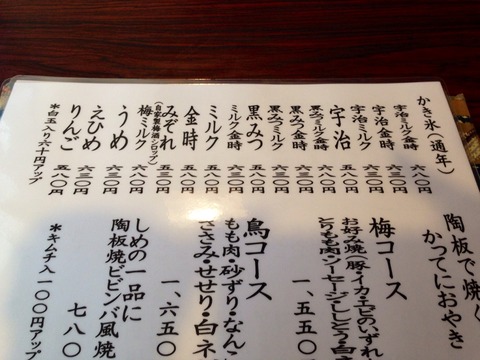 かき氷(通年)
宇治ミルク金時 六八〇円
宇治金時 六三〇円
宇治ミルク 六三〇円
宇治 五八〇円
黒みつミルク金時 六八〇円
黒みつ金時 六三〇円
黒みつミルク 六三〇円
黒みつ 五八〇円
ミルク金時 六三〇円
ミルク 五八〇円
金時 五八〇円
みぞれ 五三〇円
(自家製梅酒シロップ)
梅ミルク 六八〇円
うめ 六三〇円
えひめ 六三〇円
りんご 五八〇円
*白玉入り六十円アップ
陶板で焼く
かってにおやき
梅コース
お好み焼(豚・イカ・エビのいずれ
とりもも肉・ソーセージ・ししとう・白
一、五五〇
鳥コース
もも肉・砂ずり・なんこ
ささみ・せせり・白ネ
一、六五〇
しめの一品に
陶板焼ビビンバ風焼
七八〇
*キムチ入一〇〇円アップ